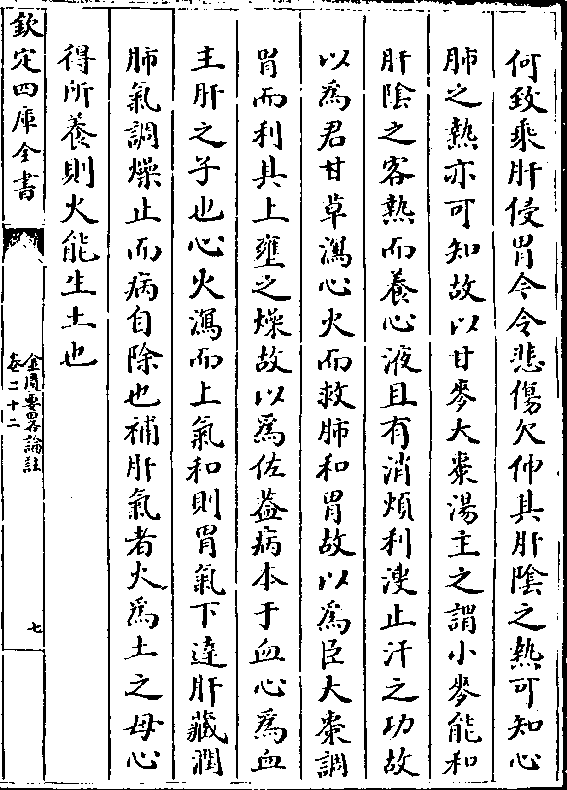 何致乘肝侵胃今令悲傷欠伸其肝陰之熱可知心
肺之熱亦可知故以甘麥大棗湯主之謂小麥能和
肝陰之客熱而養心液且有消煩利溲止汗之功故
以為君甘草瀉心火而救肺和胃故以為臣大棗調
胃而利其上壅之燥故以為佐葢病本于血心為血
主肝之子也心火瀉而上氣和則胃氣下達肝藏潤
肺氣調燥止而病自除也補肝氣者火為土之母心
得所養則火能生土也
欽定四庫全書
金匱要畧論註
卷二十二
七